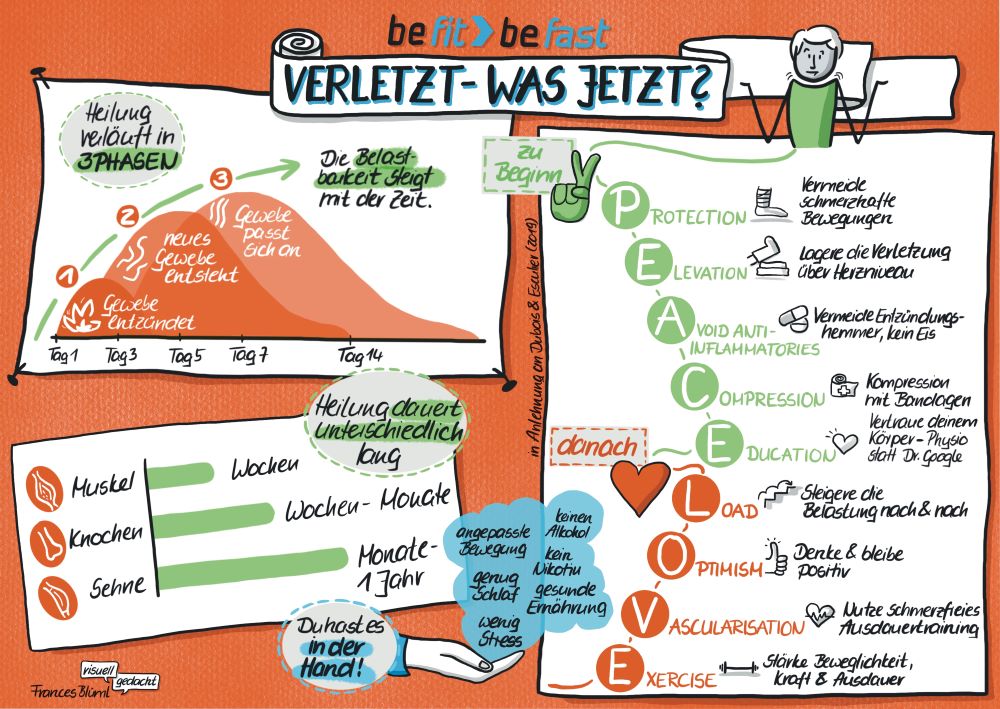 be fit > be fast
VERLETZT - WAS JETZT?
Heilung
verläuft in
3 PHASEN
Die Belast-
barkeit steigt
mit der Zeit.
1
2
3
Gewebe
entzündet
neues
Gewebe
entsteht
Gewebe
passt
sich an
Tag 1
Tag 3
Tag 5
Tag 7
Tag 14
Heilung dauert
unterschiedlich
lang
Muskel
Wochen
Knochen
Wochen - Monate
Sehne
Monate -
1 Jahr
Du hast es
in der
Hand!
angepasste
Bewegung
genug
Schlaf
wenig
Stress
keinen
Alkohol
kein
Nikotin
gesunde
Ernährung
visuell
gedacht
Frances Blüml
in Anlehnung an Dubois & Esculier (2019)
zu
Beginn
PROTECTION
Vermeide
schmerzhafte
Bewegungen
ELEVATION
Lagere die Verletzung
über Herzniveau
AVOID ANTI-
INFLAMMATORIES
Vermeide Entzündungs-
hemmer, kein Eis
COMPRESSION
Kompression
mit Bandagen
EDUCATION
Vertraue deinem
Körper - Physio
statt Dr. Google
danach
LOAD
Steigere die
Belastung nach & nach
OPTIMISM
Denke & bleibe
positiv
VASCULARISATION
Nutze schmerzfreies
Ausdauertraining
EXERCISE
Stärke Beweglichkeit,
Kraft & Ausdauer